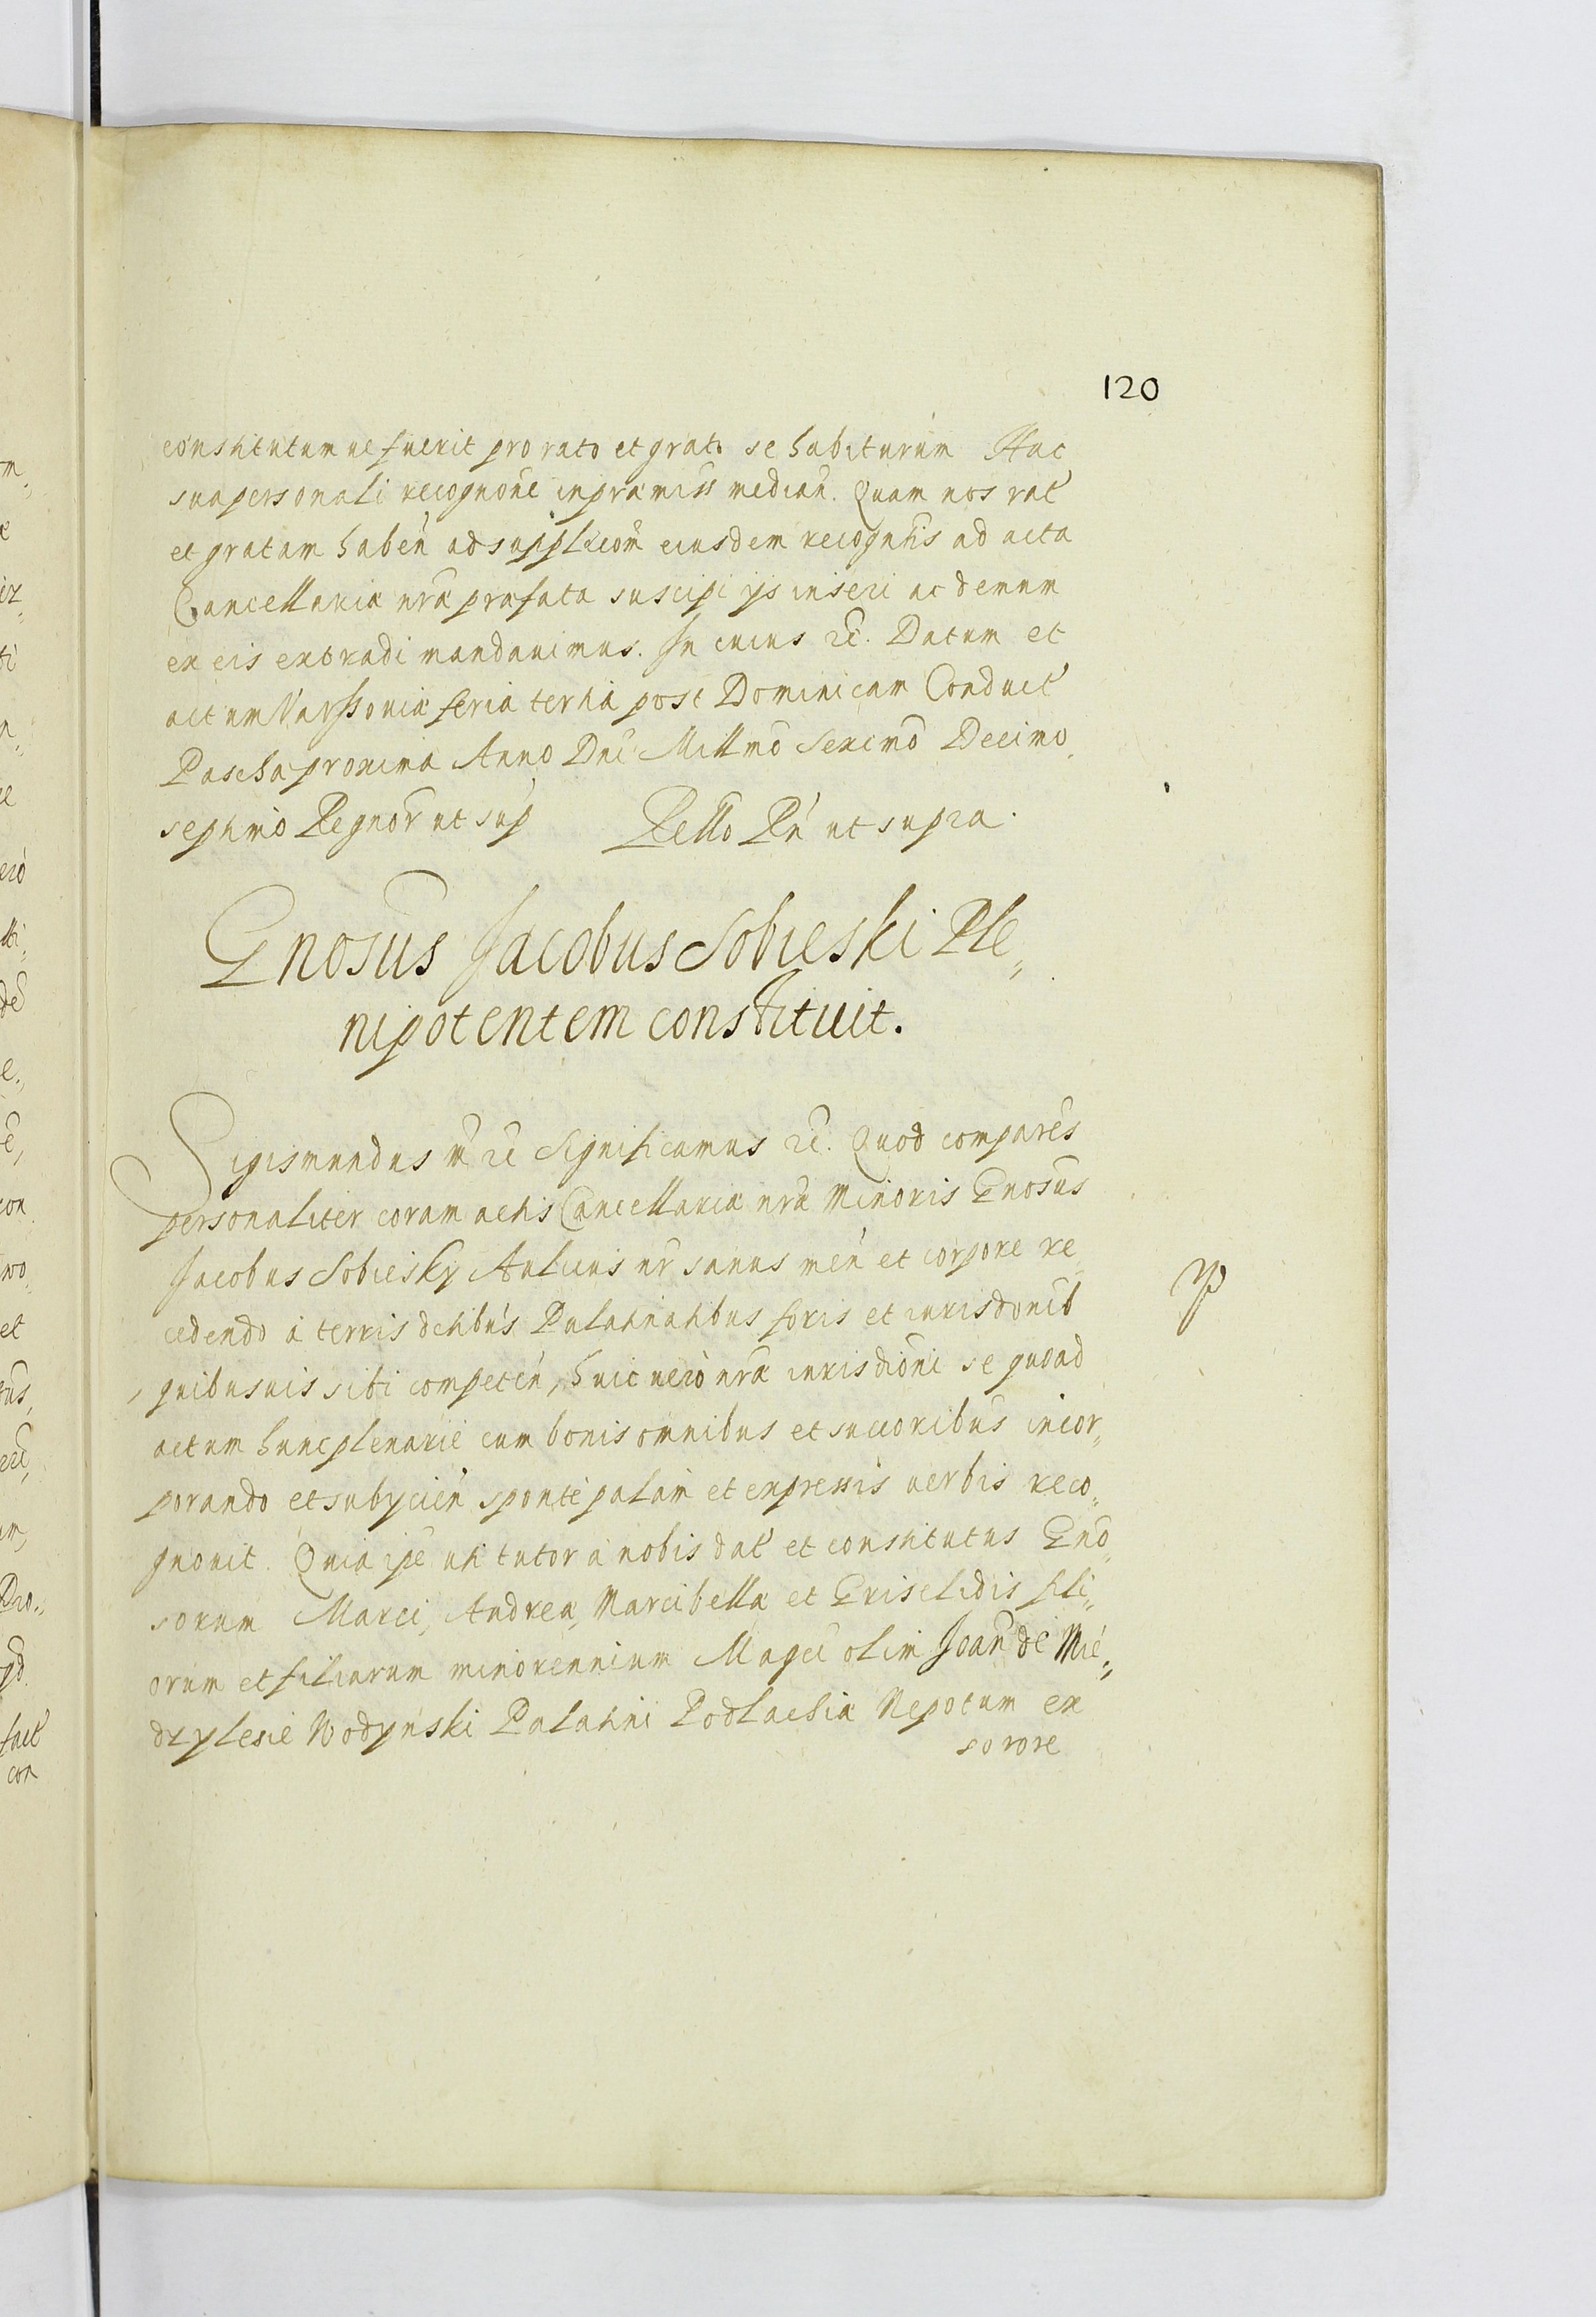 120
constitutum ue fuerit pro rato et grato se habiturum Hac
sua personali recognõne in præmiss median̄. Quam nos rat̃
et gratam haben̄ ad supplicoñ eiusdem recognũtis ad acta
Cancellariæ nr̃æ præfata suscipi ijs inseri ac demum
ex eis extradi mandauimus. In cuius rē. Datum et
actum Varssouiæ feria tertia post Dominicam Conduct̃
Paschæ proxima Anno Dnĩ Millmõ Sexcmõ Decimo
septimo Regnor̃ ut sup̃ Relło Rñ ut supra.
Gnosũs Jacobus Sobieski Ple„
nipotentem constituit.
Sigismundus III rē Significamus rē. Quod comparẽs
personaliter coram actis Cancellariæ nr̃æ Minoris Gnosũs
Jacobus Sobiesky Aulicus nr̃ sanus men̄ et corpore re„
cedendo à terris dctibũs Palatinatibus foris et iurisdonĩb
quibusuis sibi competen̄, huic uerò nr̃æ iurisdiõni se quoad
actum hunc plenariè cum bonis omnibus et succoribũs incor„
porando et subycien̄ spontè palàm et expressis uerbis reco„
gnouit. Quia ipẽ uti tutor a nobis dat̃ et constitutus Gnõ„
sorum Marci, Andreæ, Marcibellæ et Griselidis fili„
orum et filiarum minorennium Magcĩ olim Joañ de Mie„
dzylesie Wodyński Palatini Podlachiæ Nepotum ex
sorore